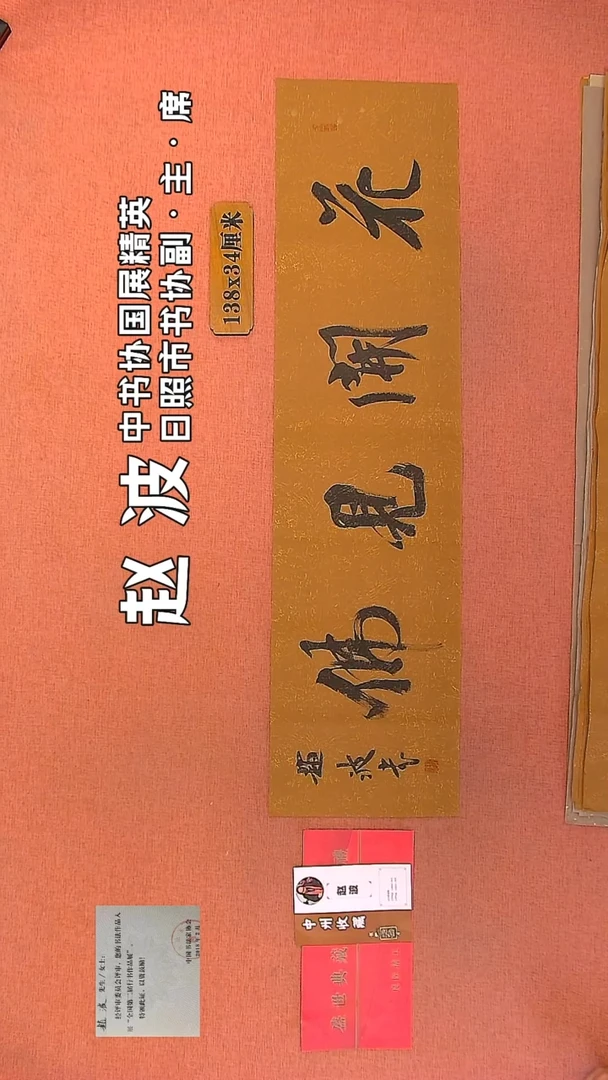 赵波
中书协国展精英
日照市书协副·主·席
138x34厘米
花開見佛
趙波书
赵波
中州收藏
盛世典藏
赵波 先生/女士：
经评审委员会评审，您的书法作品入
“全国第二届行书作品展”。
特颁此证，以资鼓励！
中国书法家协会